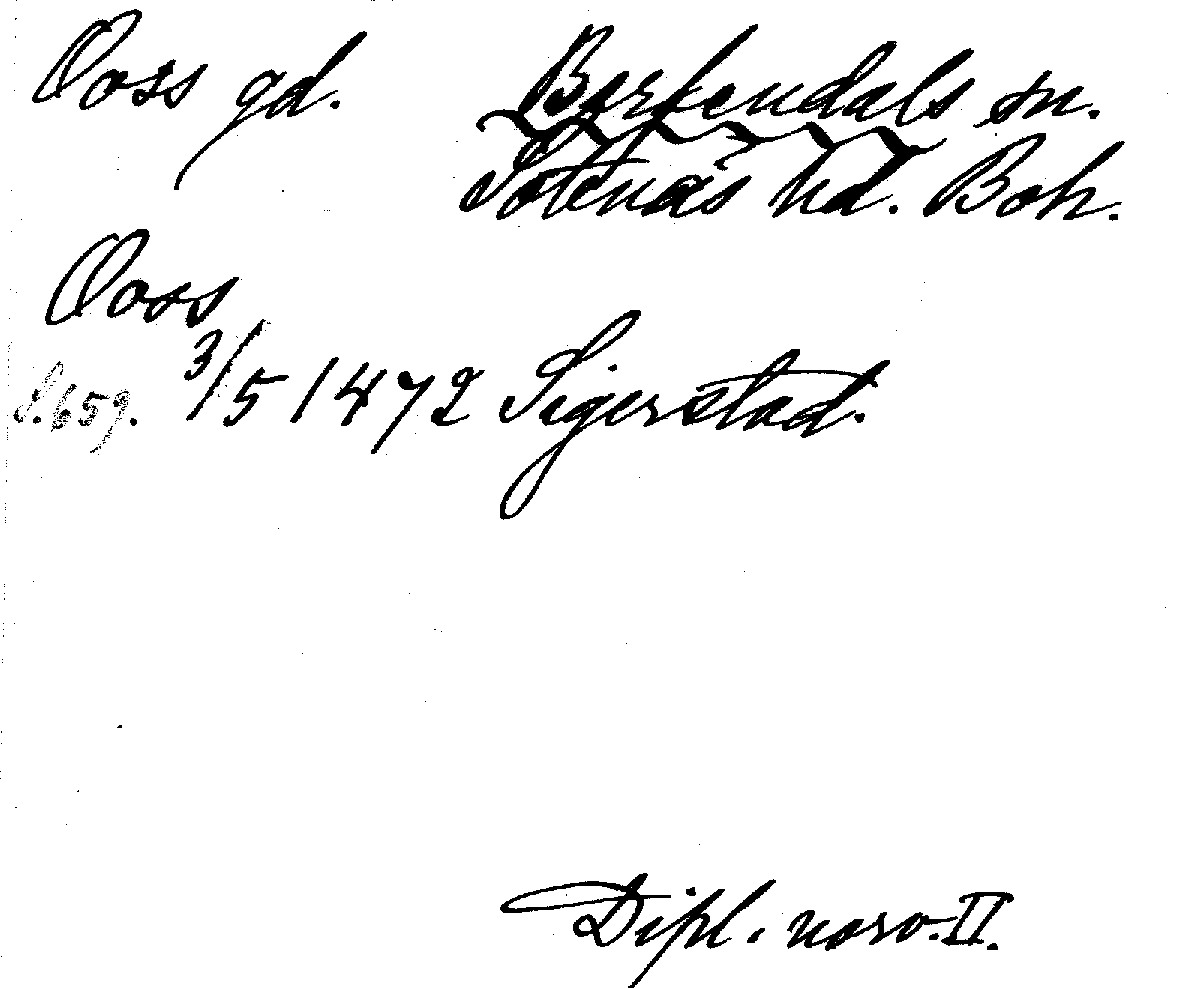 Ooss gd. Berfendals sn.
Sotenäs hd. Boh.
Ooss
S. 659. 3/5 1472 Sigerstad.
Dipl. norv. II.